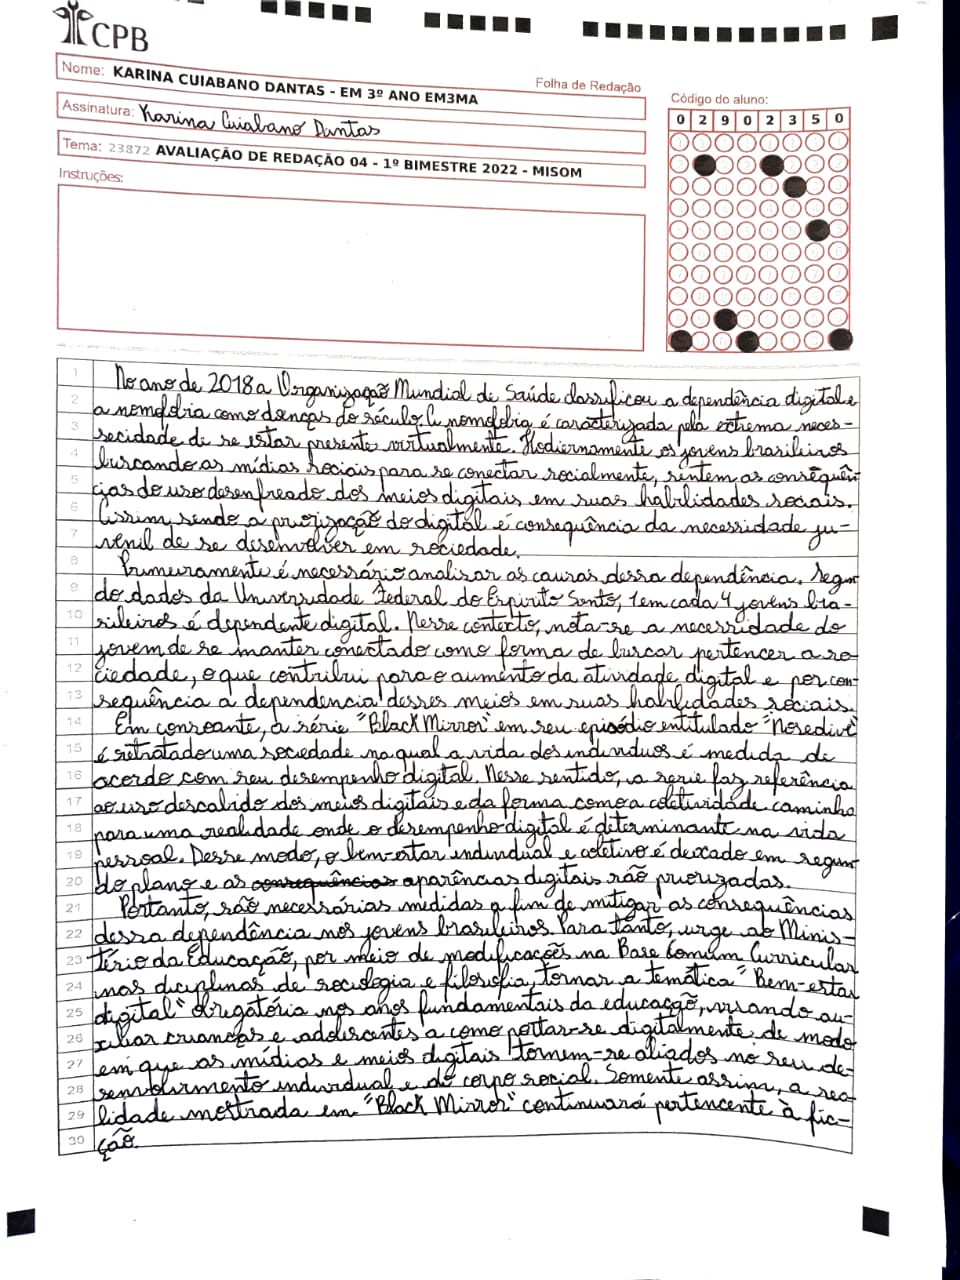 CPB
Folha de Redação
Nome: KARINA CUIABANO DANTAS - EM 3º ANO EM3MA
Assinatura: Karina Cuiabano Dantas
Tema: 23872 AVALIAÇÃO DE REDAÇÃO 04 - 1º BIMESTRE 2022 - MISOM
Instruções:
Código do aluno:
0 2 9 0 2 3 5 0
1 No ano de 2018 a Organização Mundial de Saúde classificou a dependência digital e
2 a nomofobia como doenças do século. A nomofobia é caracterizada pela extrema neces-
3 secidade de se estar presente virtualmente. Hodiernamente os jovens brasileiros
4 buscando as mídias sociais para se conectar socialmente, sentem as consequên
5 cias do uso desenfreado dos meios digitais em suas habilidades sociais.
6 Assim sendo a priorização do digital é consequência da necessidade ju-
7 venil de se desenvolver em sociedade.
8 Primeiramente é necessário analisar as causas dessa dependência. Segun
9 do dados da Universidade Federal do Espirito Santo, 1 em cada 4 jovens bra-
10 sileiros é dependente digital. Nesse contexto, nota-se a necessidade do
11 jovem de se manter conectado como forma de buscar pertencer a so
12 ciedade, o que contribui para o aumento da atividade digital e por con-
13 sequência a dependencia desses meios em suas habilidades sociais.
14 Em consoante, a série "Black Mirror" em seu episódio entitulado "Nosedive"
15 é retratado uma sociedade na qual a vida dos individuos é medida de
16 acordo com seu desempenho digital. Nesse sentido, a serie faz referência
17 ao uso descabido dos meios digitais e da forma como a coletividade caminha
18 para uma realidade onde o desempenho digital é determinante na vida
19 pessoal. Desse modo, o bem-estar individual e coletivo é deixado em segun
20 do plano e as consequências aparências digitais são priorizadas.
21 Portanto, são necessárias medidas a fim de mitigar as consequências
22 dessa dependência nos jovens brasileiros. Para tanto, urge ao Minis-
23 tério da Educação, por meio de modificações na Base Comum Curricular
24 nas diciplinas de sociologia e filosofia, tornar a temática "Bem-estar
25 digital" obrigatória nos anos fundamentais da educação, visando au-
26 xiliar crianças e adolescentes a como portar-se digitalmente, de modo
27 em que as mídias e meios digitais tornem-se aliados no seu de-
28 senvolvimento individual e do corpo social. Somente assim, a rea
29 lidade mostrada em "Black Mirror" continuará pertencente à fic-
30 ção.